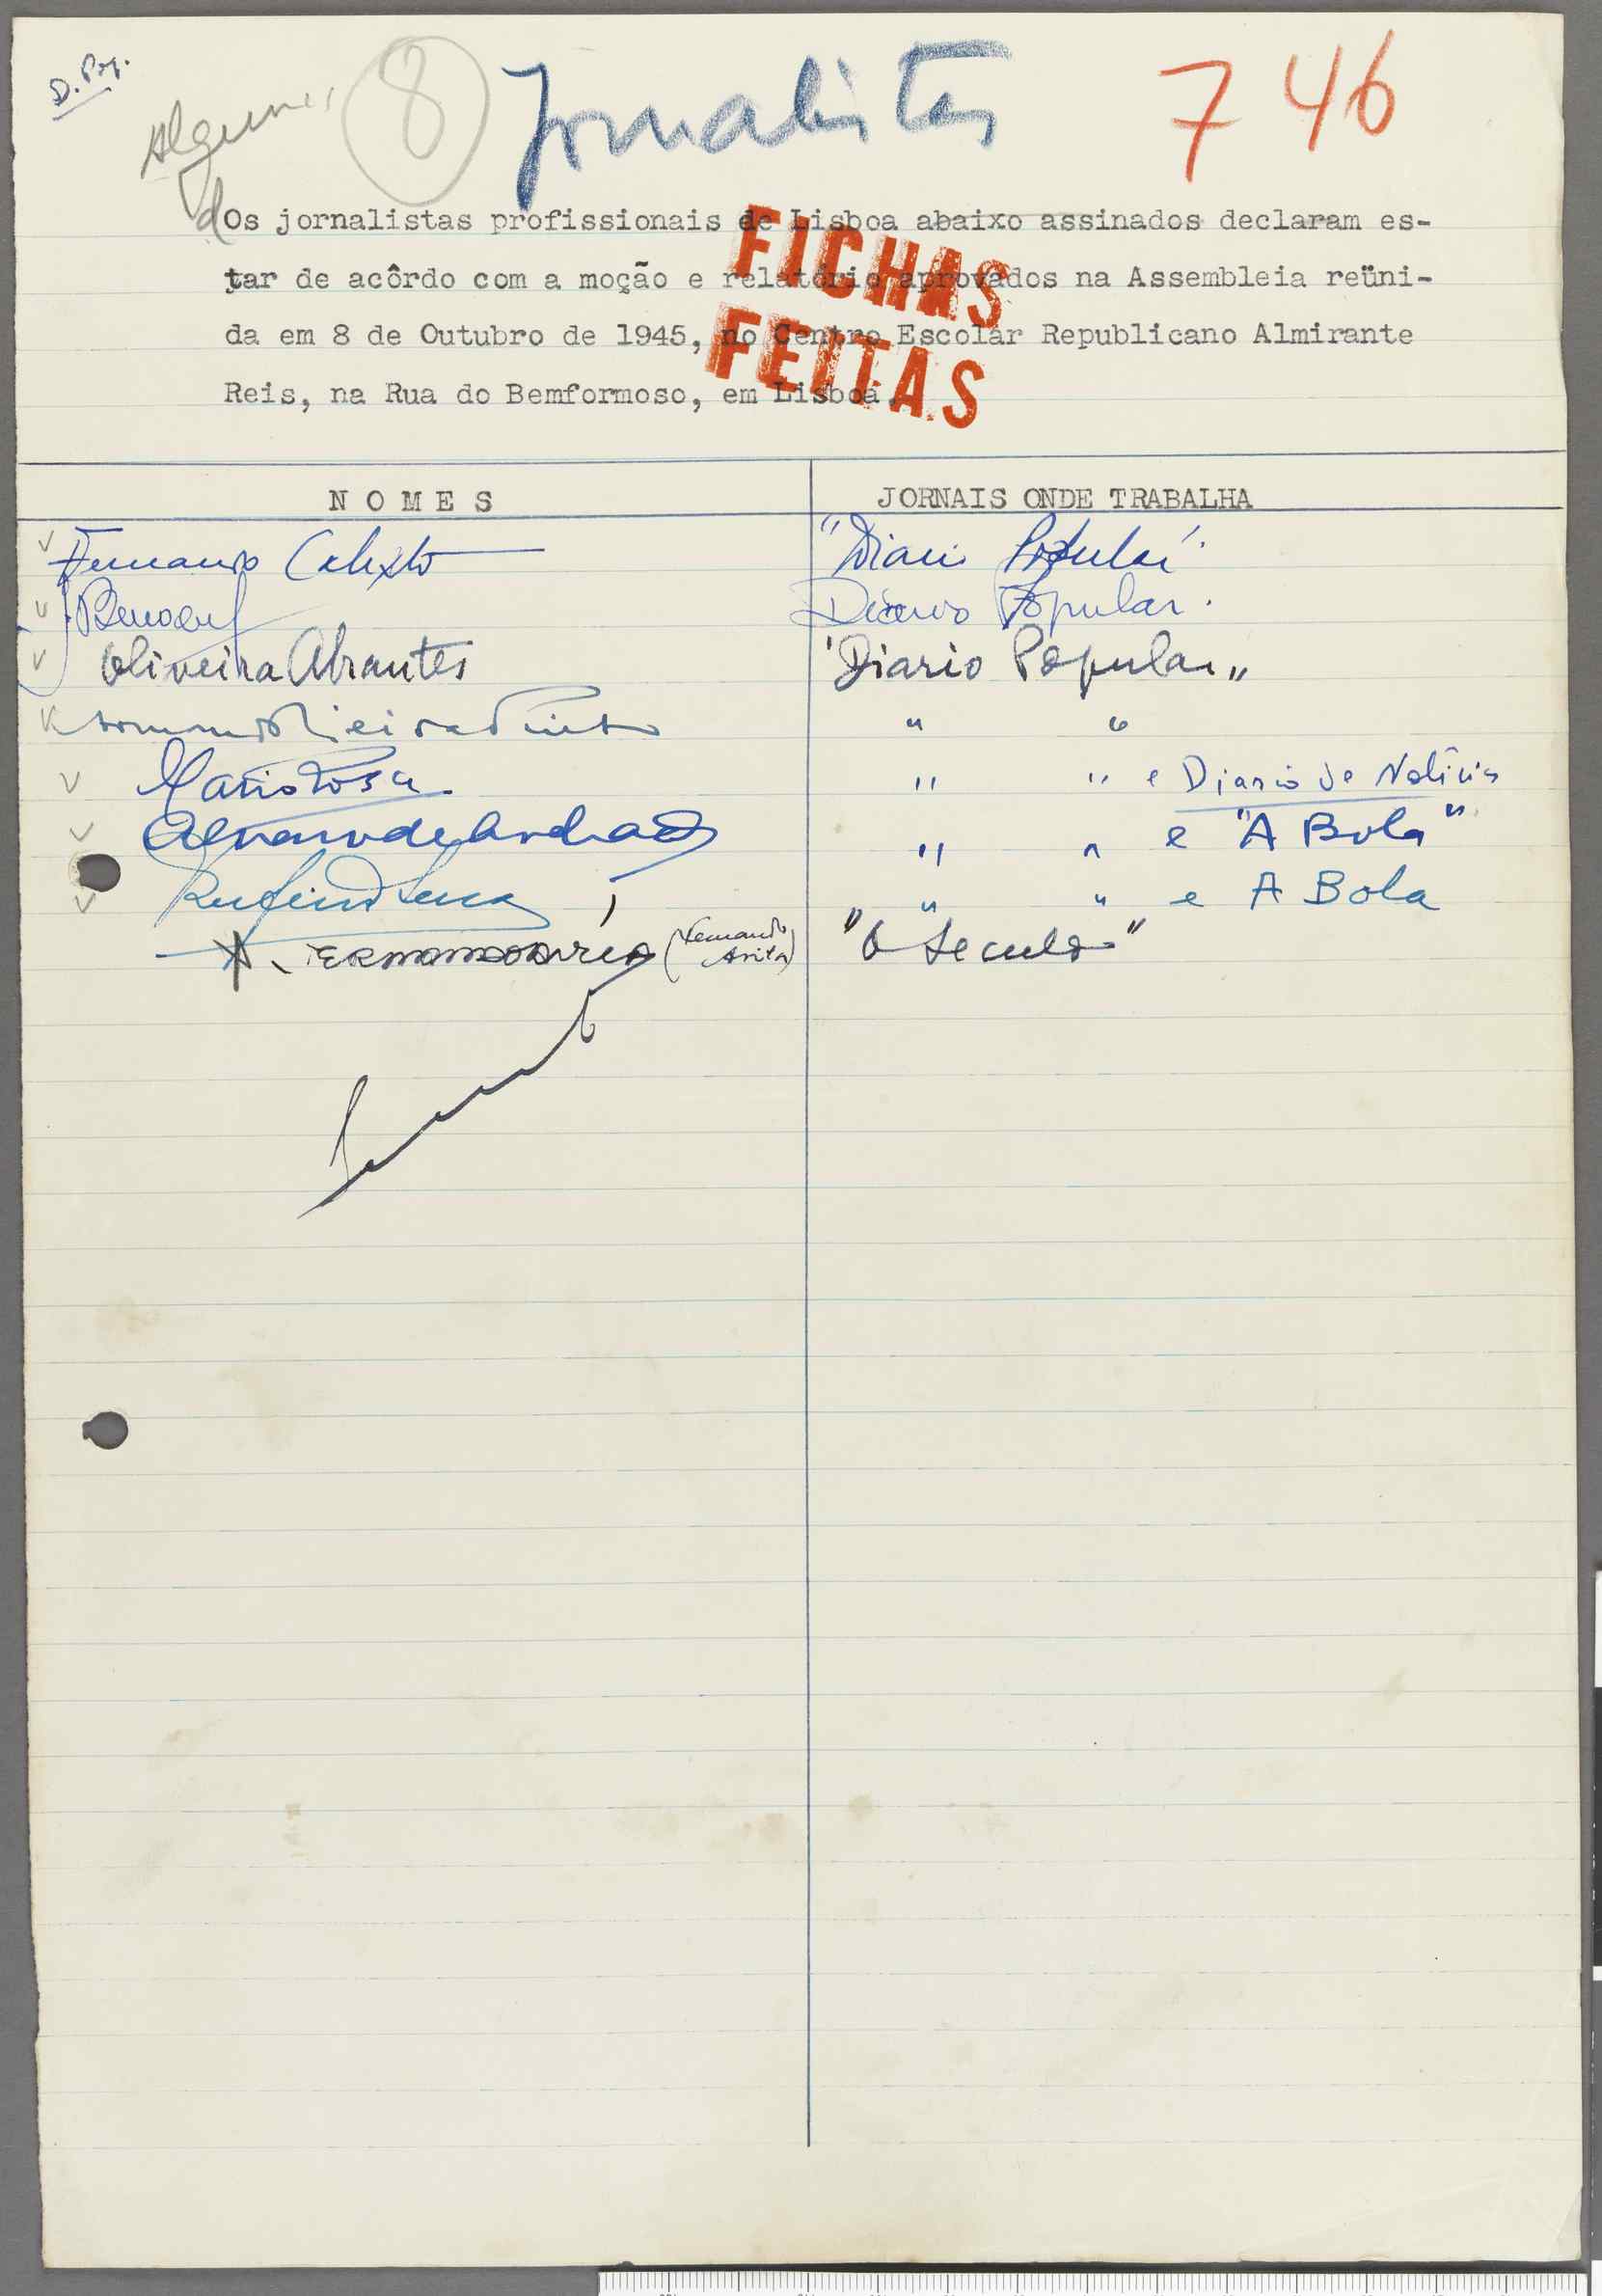 D. Pop.
Alguns 8 Jornalistas 746
dOs jornalistas profissionais de Lisboa abaixo assinados declaram es-
tar de acôrdo com a moção e relatório aprovados na Assembleia reüni-
da em 8 de Outubro de 1945, no Centro Escolar Republicano Almirante
Reis, na Rua do Bemformoso, em Lisboa.
FICHAS
FEITAS
NOMES JORNAIS ONDE TRABALHA
Fernando Calixto "Diario Popular"
Diario Popular.
Oliveira Abrantes "Diario Popular"
" "
Mario Rosa " " e Diario de Noticias
Alvaro de Andrade " " e "A Bola"
" " e A Bola
A. (Fernando "O Seculo"